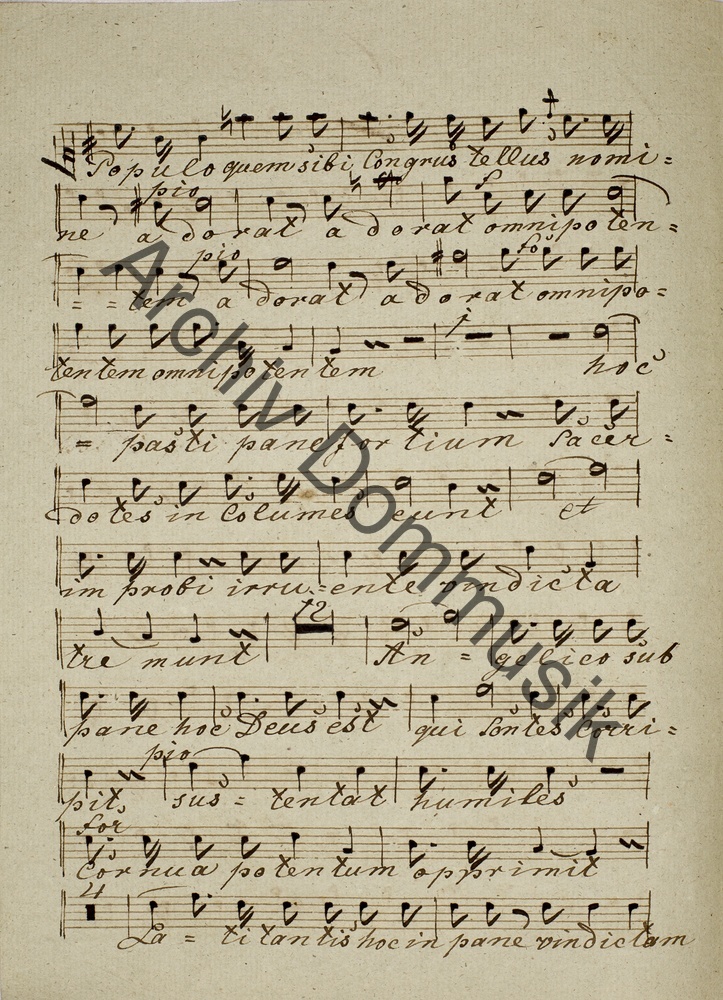 Populo quem sibi Congrus tellus nomi=
pio f
ne adorat adorat omnipoten=
pio for
= = tem adorat adorat omnipo=
1
tentem omnipotentem hoc
= pasti pane fortium Sacer=
dotes in Columes eunt et
im probi irru=ente vindicta
12
tre munt An = gelico sub
pane hoc Deus est qui Sontes Corri=
pio
pit, sus = tentat humiles
for
Cornua potentum opprimit
4
La = titantis hoc in pane vindictam
Archiv Dommusik